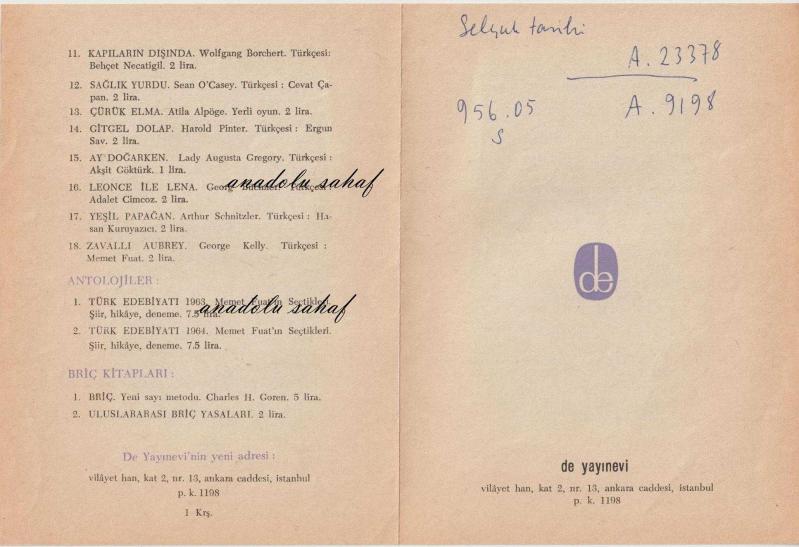 11. KAPILARIN DIŞINDA. Wolfgang Borchert. Türkçesi:
Behçet Necatigil. 2 lira.
12. SAĞLIK YURDU. Sean O'Casey. Türkçesi : Cevat Ça-
pan. 2 lira.
13. ÇÜRÜK ELMA. Atila Alpöge. Yerli oyun. 2 lira.
14. GİTGEL DOLAP. Harold Pinter. Türkçesi : Ergun
Sav. 2 lira.
15. AY DOĞARKEN. Lady Augusta Gregory. Türkçesi :
Akşit Göktürk. 1 lira.
16. LEONCE İLE LENA. Georg Büchner. Türkçesi :
anadolu sahaf
Adalet Cimcoz. 2 lira.
17. YEŞİL PAPAĞAN. Arthur Schnitzler. Türkçesi : Ha-
san Kuruyazıcı. 2 lira.
18. ZAVALLI AUBREY. George Kelly. Türkçesi :
Memet Fuat. 2 lira.
ANTOLOJİLER :
1. TÜRK EDEBİYATI 1963. Memet Fuat'ın Seçtikleri.
anadolu sahaf
Şiir, hikâye, deneme. 7.5 lira.
2. TÜRK EDEBİYATI 1964. Memet Fuat'ın Seçtikleri.
Şiir, hikâye, deneme. 7.5 lira.
BRİÇ KİTAPLARI :
1. BRİÇ. Yeni sayı metodu. Charles H. Goren. 5 lira.
2. ULUSLARARASI BRİÇ YASALARI. 2 lira.
De Yayınevi'nin yeni adresi :
vilâyet han, kat 2, nr. 13, ankara caddesi, istanbul
p. k. 1198
1 Krş.
Selçuk tarihi
A. 23378
956.05
A. 9198
S
de
de yayınevi
vilâyet han, kat 2, nr. 13, ankara caddesi, istanbul
p. k. 1198